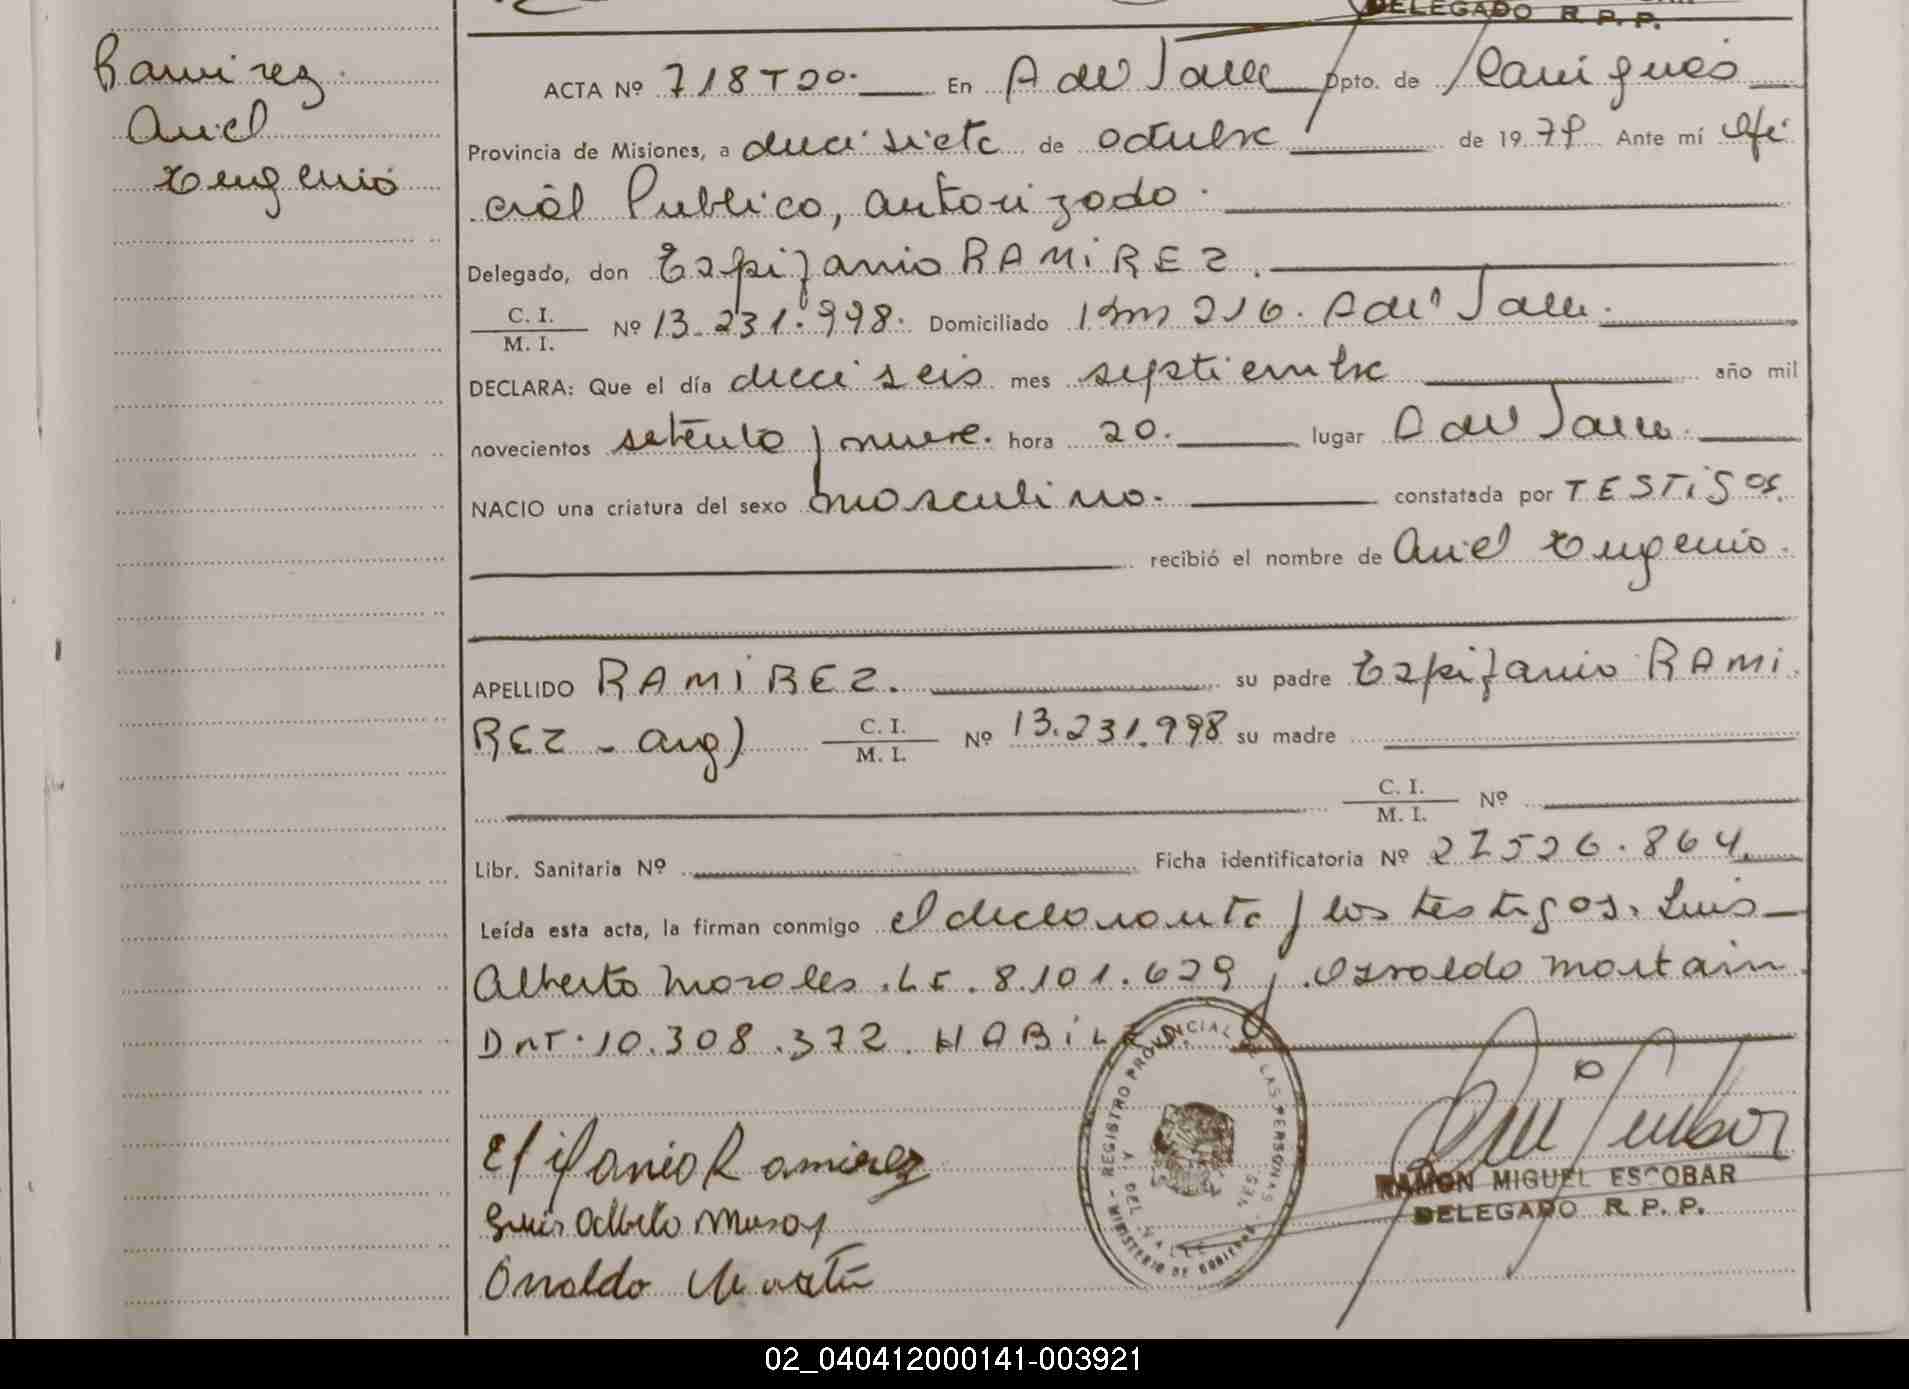 DELEGADO R. P. P.
Ramirez
Ariel
Eugenio
ACTA Nº 718 Tº 2º. En A del Valle Dpto. de Cainguás
Provincia de Misiones, a diecisiete de octubre de 1979 Ante mí Ofi
cial Publico, autorizado
Delegado, don Espifanio RAMIREZ.
C. I.
M. I. Nº 13.231.998. Domiciliado Km 216. A del Valle.
DECLARA: Que el día dieciseis mes septiembre año mil
novecientos setenta y nueve. hora 20. lugar A del Valle.
NACIO una criatura del sexo masculino. constatada por TESTIGOS.
recibió el nombre de Ariel Eugenio.
APELLIDO RAMIREZ. su padre Espifanio RAMI
REZ - arg) C. I.
M. I. Nº 13.231.998 su madre
C. I.
M. I. Nº
Libr. Sanitaria Nº Ficha identificatoria Nº 27526.864.
Leída esta acta, la firman conmigo el declarante y los testigos. Luis
Alberto Morales. LE. 8.101.629 y Osvaldo Martain
DNI. 10.308.372. HABILES.
REGISTRO PROVINCIAL DE LAS PERSONAS
MINISTERIO DE GOBIERNO
DEL VALLE
Epifanio Ramirez
Luis Alberto
Osvaldo Martin
RAMON MIGUEL ESCOBAR
DELEGADO R. P. P.
02_040412000141-003921